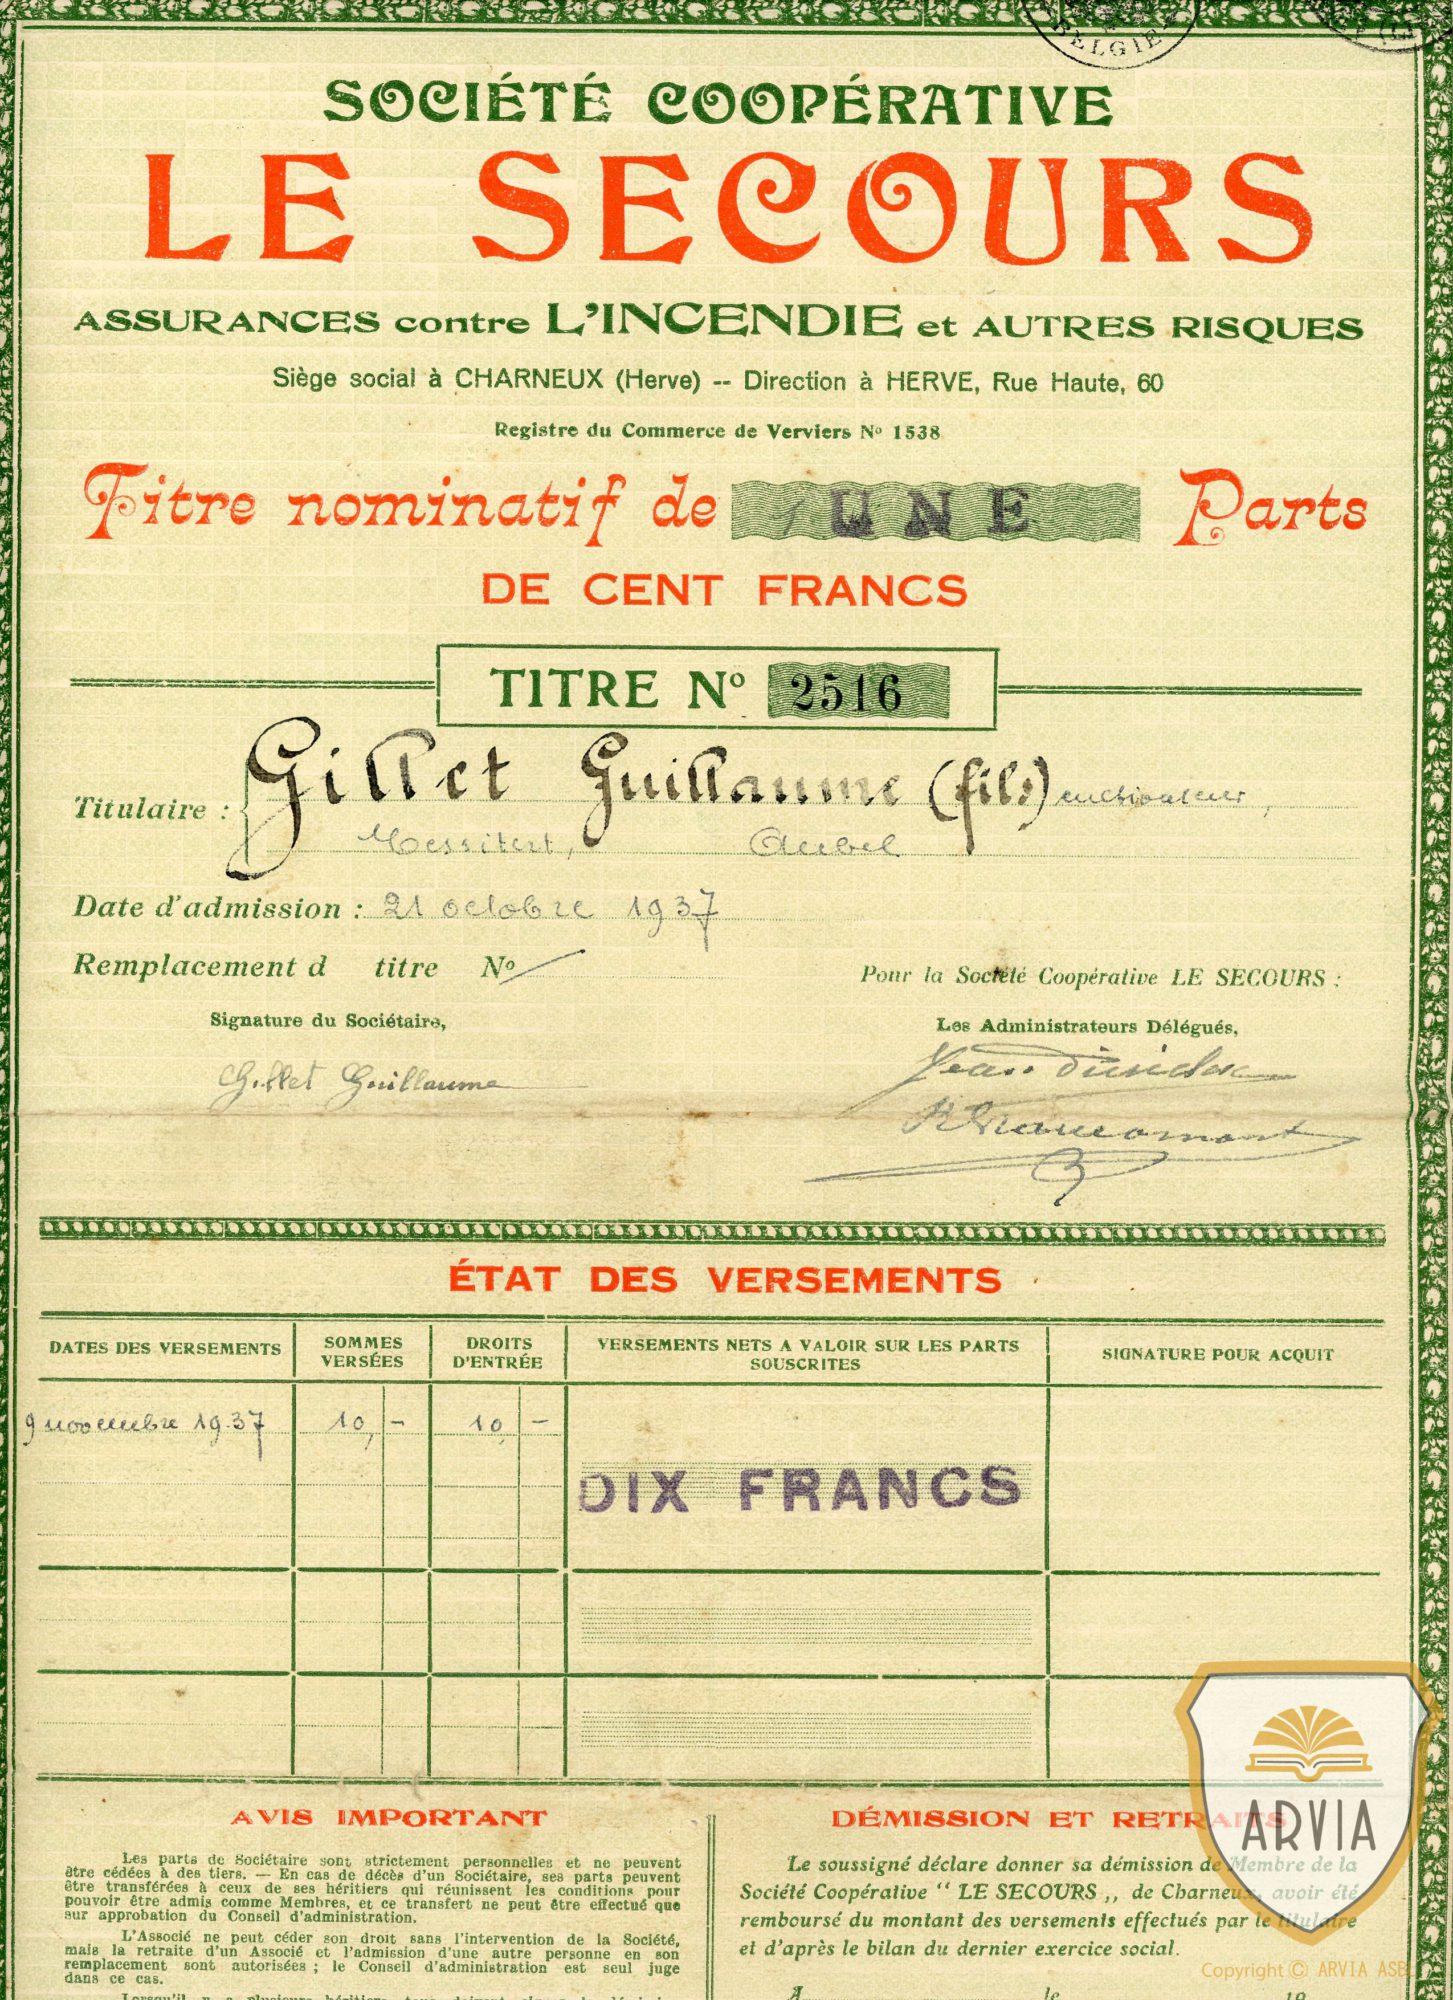 BELGIE
SOCIÉTÉ COOPÉRATIVE
LE SECOURS
ASSURANCES contre L'INCENDIE et AUTRES RISQUES
Siège social à CHARNEUX (Herve) -- Direction à HERVE, Rue Haute, 60
Registre du Commerce de Verviers No 1538
Titre nominatif de 1 UNE Parts
DE CENT FRANCS
TITRE No 2516
Titulaire : Gillet Guillaume (fils)
Aubel
Date d'admission : 21 octobre 1937
Remplacement d titre No
Pour la Société Coopérative LE SECOURS :
Signature du Sociétaire,
Les Administrateurs Délégués,
Gillet Guillaume
ÉTAT DES VERSEMENTS
DATES DES VERSEMENTS SOMMES VERSÉES DROITS D'ENTRÉE VERSEMENTS NETS A VALOIR SUR LES PARTS SOUSCRITES SIGNATURE POUR ACQUIT
9 novembre 1937 10,- 10,-
DIX FRANCS
AVIS IMPORTANT
Les parts de Sociétaire sont strictement personnelles et ne peuvent
être cédées à des tiers. — En cas de décès d'un Sociétaire, ses parts peuvent
être transférées à ceux de ses héritiers qui réunissent les conditions pour
pouvoir être admis comme Membres, et ce transfert ne peut être effectué que
sur approbation du Conseil d'administration.
L'Associé ne peut céder son droit sans l'intervention de la Société,
mais la retraite d'un Associé et l'admission d'une autre personne en son
remplacement sont autorisées ; le Conseil d'administration est seul juge
dans ce cas.
DÉMISSION ET RETRAITS
Le soussigné déclare donner sa démission de Membre de la
Société Coopérative “ LE SECOURS ,, de Charneux, avoir été
remboursé du montant des versements effectués par le titulaire
et d'après le bilan du dernier exercice social.
A le 19
ARVIA
Copyright © ARVIA ASBL